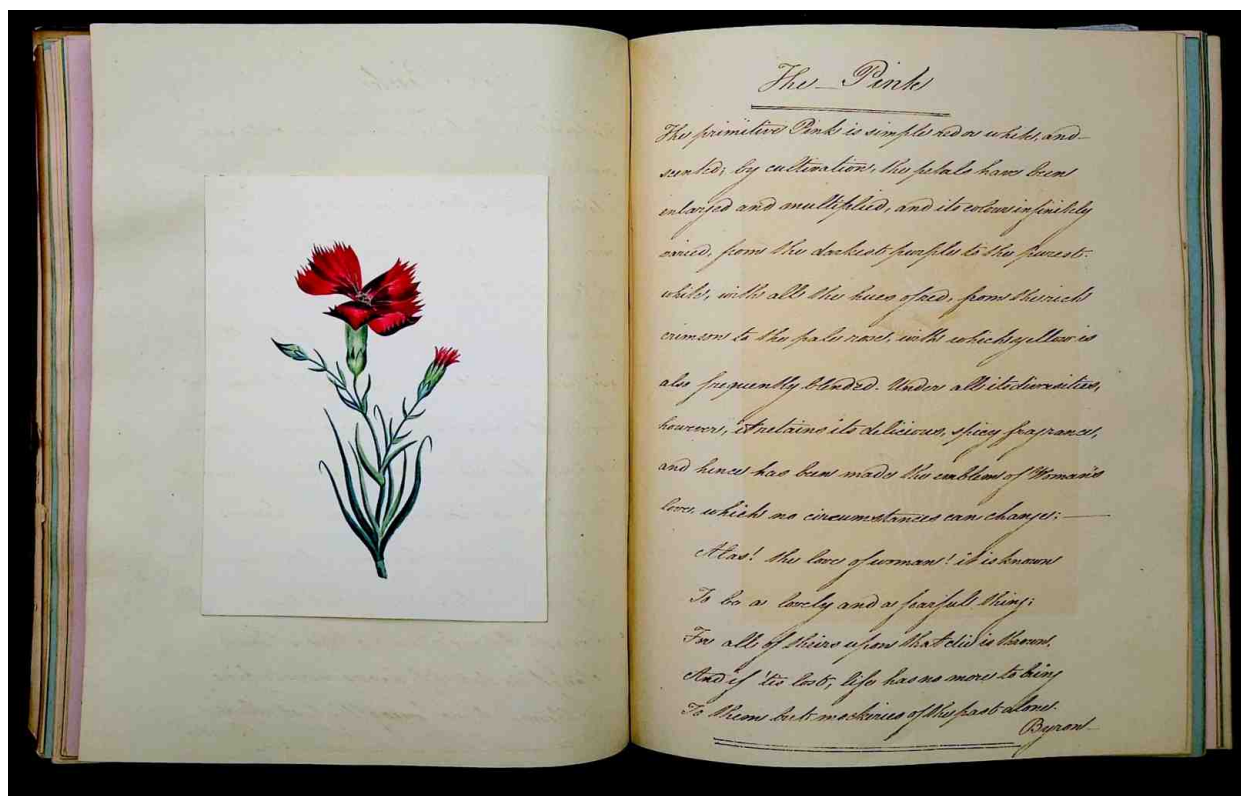 The Pink
The primitive Pink is simple red or white, and
scented; by cultivation, the petals have been
enlarged and multiplied, and its colours infinitely
varied, from the darkest purple to the purest
white, with all the hues of red, from the rich
crimson to the pale rose, with which yellow is
also frequently blended. Under all its diversities,
however, it retains its delicious, spicy fragrance,
and hence has been made the emblem of Woman's
love, which no circumstances can change; —
Alas! the love of woman! it is known
To be a lovely and a fearful thing;
For all of theirs upon that die is thrown,
And if 'tis lost, life has no more to bring
To them but mockeries of the past alone.
Byron